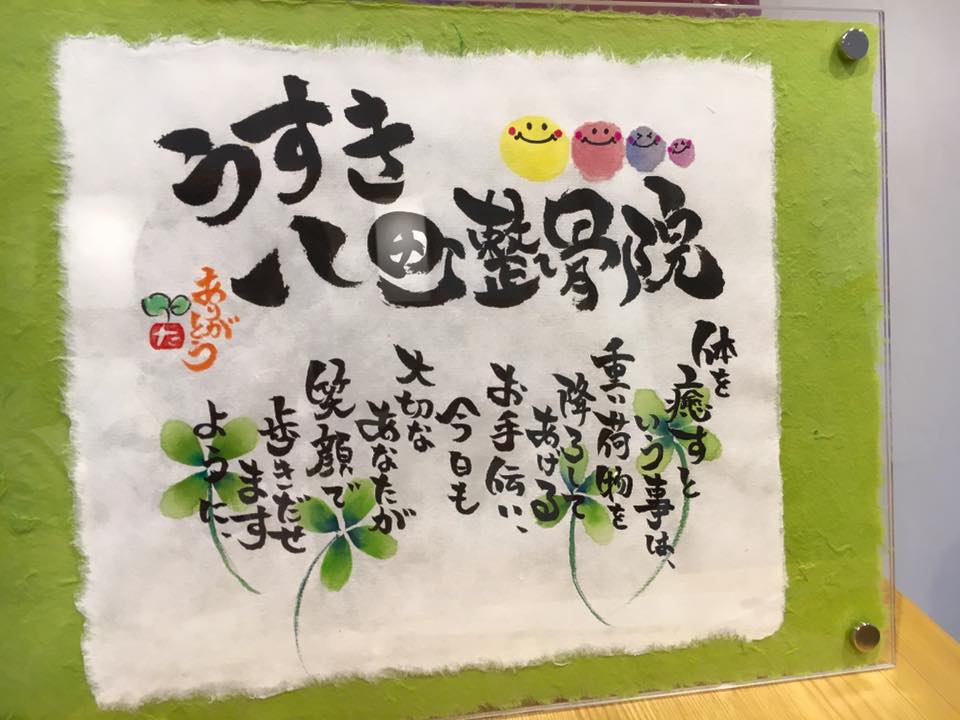 うすき
八整骨院
体を
癒すと
いう事は、
重い荷物を
降ろして
あげる
お手伝い、
今日も
大切な
あなたが
笑顔で
歩きだせ
ます
ように、
ありがとう
た